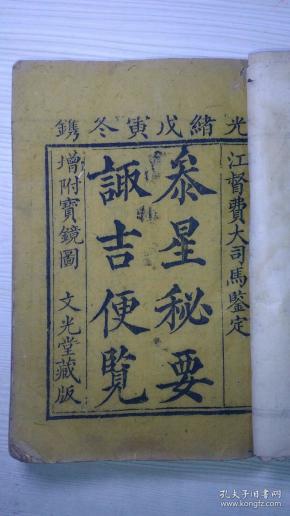 光緒戊寅冬鐫
江督費大司馬鑒定
叅星秘要
諏吉便覧
增附寶鏡圖 文光堂藏版
孔夫子旧书网
www.kongfz.com